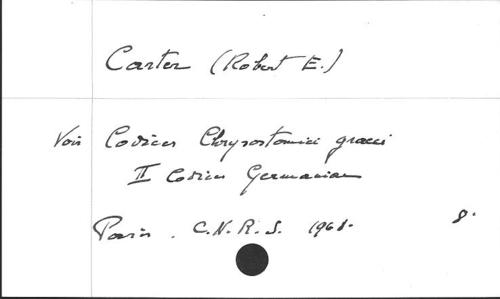 Carter (Robert E.)
Voir Codices Chrysostomici graeci
II Codices Germaniae
Paris. C.N.R.S. 1968. 8.